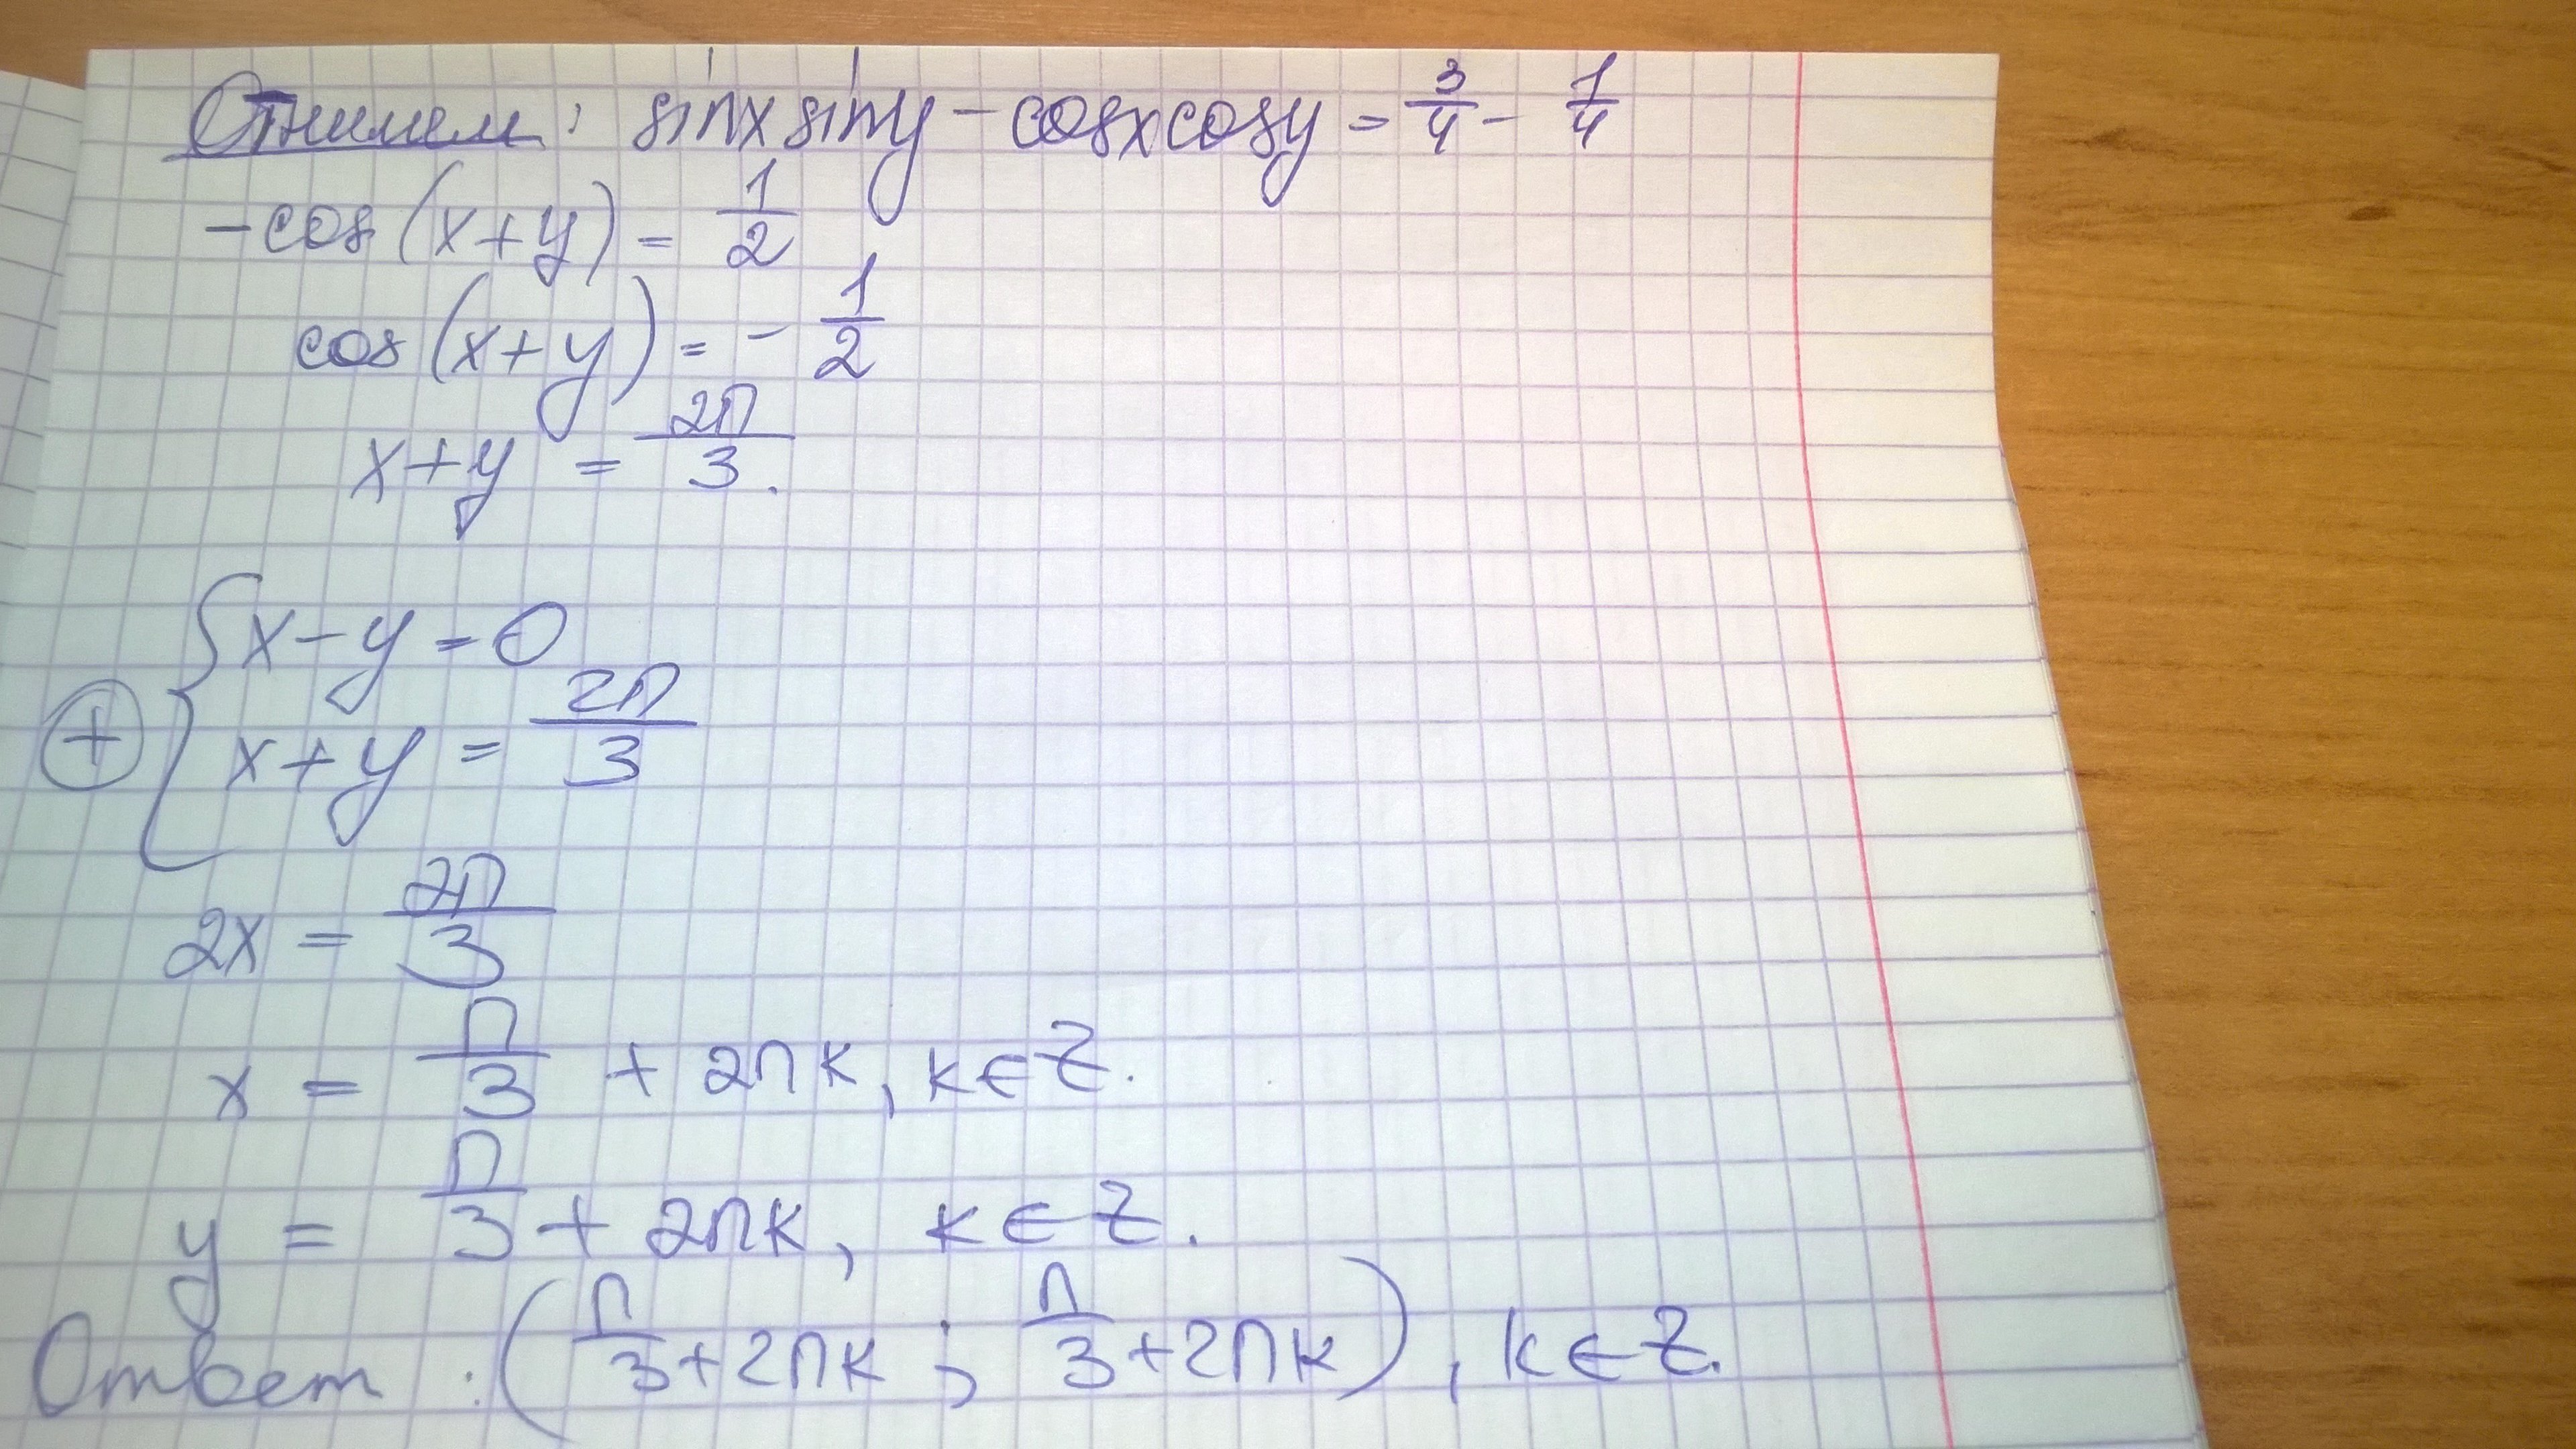 Отнимем: sinx siny - cosx cosy = 3/4 - 1/4
-cos(x+y) = 1/2
cos(x+y) = - 1/2
x+y = 2π/3.
x-y = 0
+ x+y = 2π/3
2x = 2π/3
x = π/3 + 2πk, k∈Z.
y = π/3 + 2πk, k∈Z.
Ответ: (π/3+2πk ; π/3+2πk), k∈Z.